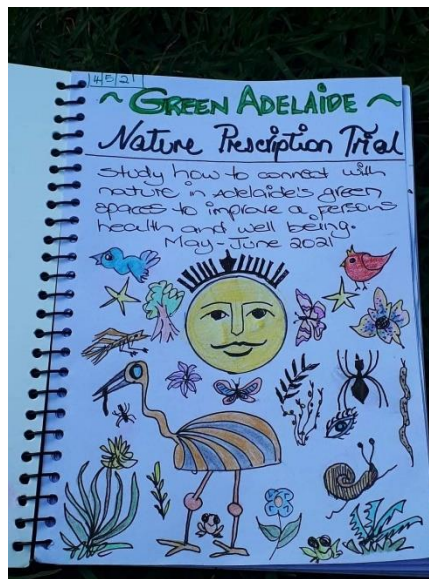 4/5/21
~ GREEN ADELAIDE ~
Nature Prescription Trial
Study how to connect with
nature in Adelaide's green
spaces to improve a persons
health and well being.
May-June 2021